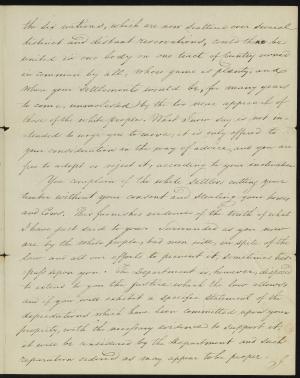 the six nations, which are now scattered over several
distinct and distant reservations, could then be
united in one body on one tract of Country owned
in common by all, where game is plenty, and
where your settlements would be, for many years
to come, unmolested by the too near approach of
those of the white people. What I now say is not in-
tended to urge you to move; it is only offered to
your consideration in the way of advice, and you are
free to adopt or reject it, according to your inclination.
You complain of the white settlers cutting your
timber without your consent and stealing your horses
and Cows. This furnishes evidence of the truth of what
I have just said to you. Surrounded as you now
are by the white people, bad men will, in spite of the
law and all our efforts to prevent it, sometimes tres-
pass upon you. The Department is, however, disposed
to extend to you the justice which the law allows
and if you will exhibit a specific statement of the
depredations which have been committed upon your
property, with the necessary evidence to support it,
it will be considered by the Department and such
reparation ordered as may appear to be proper.